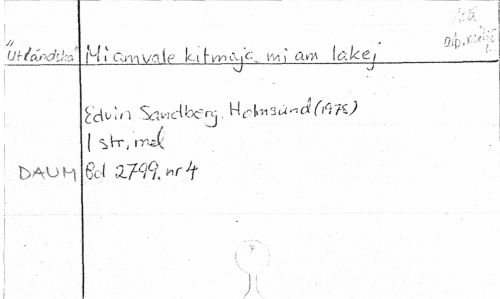 "Utländska" Miamvale kitmaja mi am lakej
Edvin Sandberg. Holmsund (1975)
1 str, mel
DAUM Bd 2799. nr 4